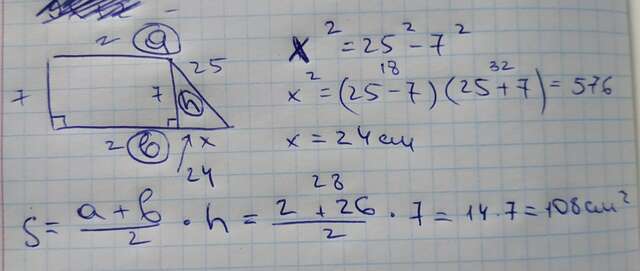 2 a
25
7
7
h
2 b
x
24
x² = 25² - 7²
18 32
x² = (25 - 7)(25 + 7) = 576
x = 24 см
28
S = a + b / 2 · h = 2 + 26 / 2 · 7 = 14 · 7 = 108 см²